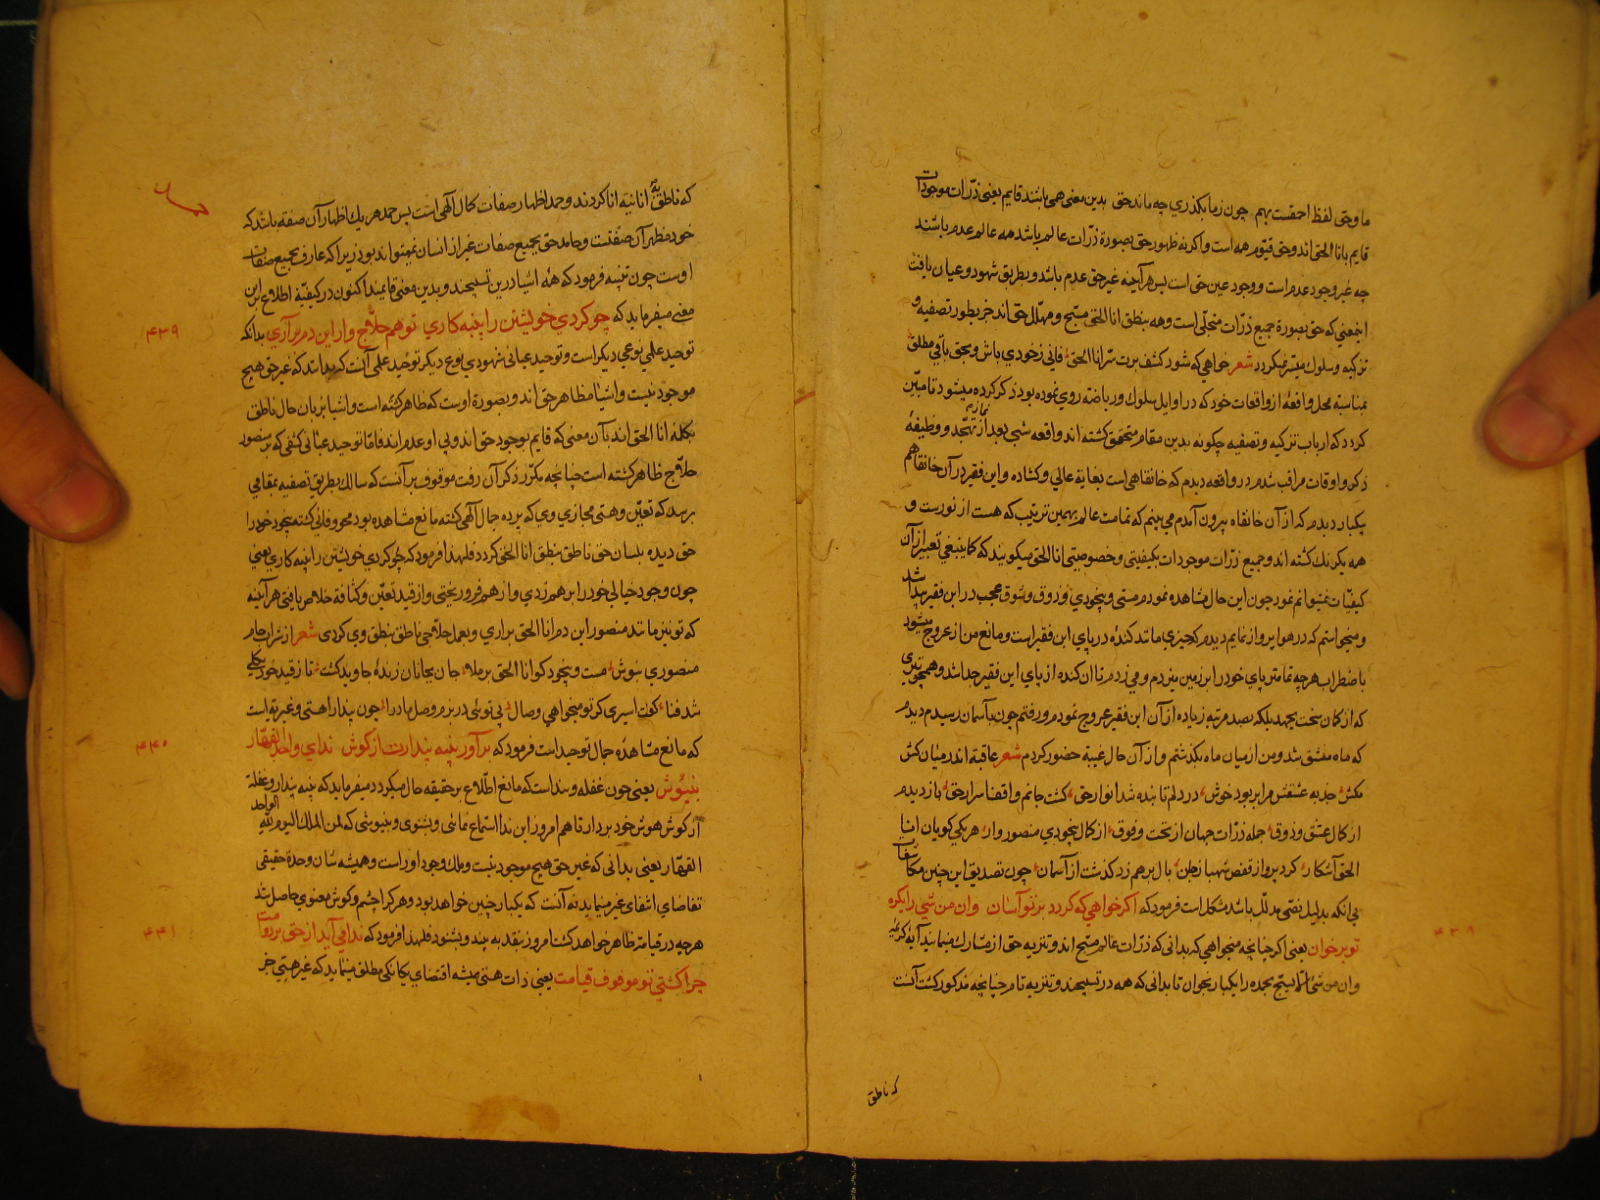 ما وحق لفظ احمقست بهم چون زما بكذري چه ماند حق بدین معنی همی باشند قایم یعنی ذرّات موجودات
قایم بانا الحق اند وحق قیّوم همه است واكر نه ظهور حق بصورة ذرّات عالم باشد همه عالم عدم باشند
چه غیر وجود عدم است ووجود عین حق است پس هر آینه غیر حق عدم باشد وبطریق شهود وعیان یافت
اینمعنی كه حق بصورة جمیع ذرّات متجلّی است وهمه بنطق انا الحق مسبّح ومهلّل حق اند جز بطور تصفیه و
تزكیه وسلوك میسّر نمیكردد شعر خواهی كه شود كشف برت سرّ انا الحق فانی ز خودي باش وبحق باقی مطلق
بمناسبة محل واقعهٔ از واقعات خود كه در اوایل سلوك وریاضة روي نموده بود ذكر كرده میشود تا مبیّن
كردد كه ارباب تزكیه وتصفیه چكونه بدین مقام متحقق كشته اند واقعه شبی بعد از نماز تهجّد ووظیفهٔ
ذكر واوقات مراقب شدم در واقعه دیدم كه خانقاهی است بغایة عالي وكشاده واین فقیر در آن خانقاهم
یكبار دیدم كه از آن خانقاه بیرون آمدم می بینم كه تمامت عالم بهمین ترتیب كه هست از نورست و
همه یكرنك كشته اند وجمیع ذرّات موجودات بكیفیتی وخصوصیتی انا الحق میكویند كه كما ینبغی تعبیر از آن
كیفیّات نمیتوانم نمود چون این حال مشاهده نمودم مستی وبیخودي وذوق وشوق عجب در این فقیر پیدا شد
ومیخواستم كه در هوا پرواز نمایم دیدم كه چیزي مانند كندهٔ در پاي این فقیر است ومانع من از عروج میشود
باضطراب هر چه تمامتر پاي خود را بر زمین میزدم ومی زدم تا آن كنده از پاي این فقیر جدا شد وهمچو تیري
كه از كمان سخت بجهد بلكه بصد مرتبه زیاده از آن این فقیر عروج نمودم ورفتم چون بآسمان رسیدم دیدم
كه ماه منشق شد ومن از میان ماه بكذشتم واز آن حال غیبة حضور كردم شعر عاقبة اندر میان كش
مكش جذبه عشقش مرا بربود خوش در دلم تابنده شد انوار حق كشت جانم واقف اسرار حق بازدیدم
از كمال عشق وذوق جمله ذرّات جهان از تحت وفوق از كمال بیخودي منصور وار هر یكی كویان انا
الحق آشكار كرد پرواز از قفص شهباز جان بال بر هم زد كذشت از آسمان چون تصدیق این چنین مكاشفات
بی آنكه بدلیل نصّی مدلّل باشد مشكل است فرمود كه اكر خواهی كه كردد بر تو آسان وان من شي را یكره
تو بر خوان یعنی اكر چنانچه میخواهی كه بدانی كه ذرّات عالم مسبّح اند وتنزیه حق از مشارك مینمایند آیهٔ كریمه
وان من شئ الّا یسبّح بحمده را یكبار بخوان تا بدانی كه همه در تسبیحند وتنزیه تام چنانچه مذكور كشت آنست
كه ناطق
كه ناطق به انانیّة انا كردند وحمد اظهار صفات كمال آلهی است پس حمد هر یك اظهار آن صفة باشد كه
خود مظهر آن صفتست وحامد حق بجمیع صفات غیر از انسان نمیتواند بود زیرا كه عارف بجمیع صفات
اوست چون تنبیه فرمود كه همه اشیا در این تسبیحند وبدین معنی قایمند اكنون در كیفیّة اطلاع این
معنی میفرماید كه چو كردي خویشتن را پنبه كاري تو هم حلّاج وار این دم برآري بدانكه
توحید علمی نوعي دیكر است وتوحید عیانی شهودي نوع دیكر توحید علمی آنست كه بداند كه غیر حق هیچ
موجود نیست واشیا مظاهر حق اند وبصورة اوست كه ظاهر كشته است واشیا بزبان حال ناطق
بكلمه انا الحق اند بآن معنی كه قایم بوجود حق اند وبی او عدم اند فامّا توحید عیانی كشفی كه بر منصور
حلاّج ظاهر كشته است چنانچه مكرّر ذكر آن رفت موقوف بر آنست كه سالك بطریق تصفیه بمقامي
برسد كه تعیّن وهستی مجازي وي كه پرده جمال آلهی كشته مانع مشاهده بود محو وفاني كشته بیخود خود را
حق دیده بلسان حق ناطق بنطق انا الحق كردد فلهذا فرمود كه چو كردي خویشتن را پنبه كاري یعنی
چون وجود خیالي خود را بر هم زدي واز هم فرو ریختی واز قید تعیّن وكثافة خلاص یافتی هر آینه
كه تو نیز مانند منصور این دم انا الحق براري وبعمل حلّاجی ناطق بنطق وي كردی شعر از شراب جام
منصوري بنوش مست وبیخود كو انا الحق برملا جان بجانان زندهٔ جاوید كشت تا ز قید خود بكلّی
شد فنا كوت اسیري كر تو میخواهي وصال بی توئی در بزم وصل ما درآ چون پندار هستی وغیریّة است
كه مانع مشاهده جمال توحید است فرمود كه برآور پنبه پندارت از كوش نداي واحد القهّار
بنیوش یعنی چون غفله وپنداست كه مانع اطلاع بر حقیقه حال میكردد میفرماید كه پنبه پندار وغفلة
از كوش هوش خود بردار تا هم امروز این ندا استماع نمائی وبشنوی وبنیوشی كه لمن الملك الیوم لله الواحد
القهّار یعنی بدانی كه غیر حق هیچ موجود نیست وملك وجود او راست وهمیشه شان وحدة حقیقی
تقاضاي انتفاي غیر مینماید نه آنست كه یكبار چنین خواهد بود وهر كرا چشم وكوش معنوي حاصل شد
هر چه در قیامة ظاهر خواهد كشت امروز بنقد به بیند وبشنود فلهذا فرمود كه ندا می آید از حق بر دوامت
چرا كشتي تو موقوف قیامت یعنی ذات هستی همیشه اقتضاي یكانكی مطلق مینماید كه غیر هستی حق
۴۳۸
۴۳۹
۴۴۰
۴۴۱